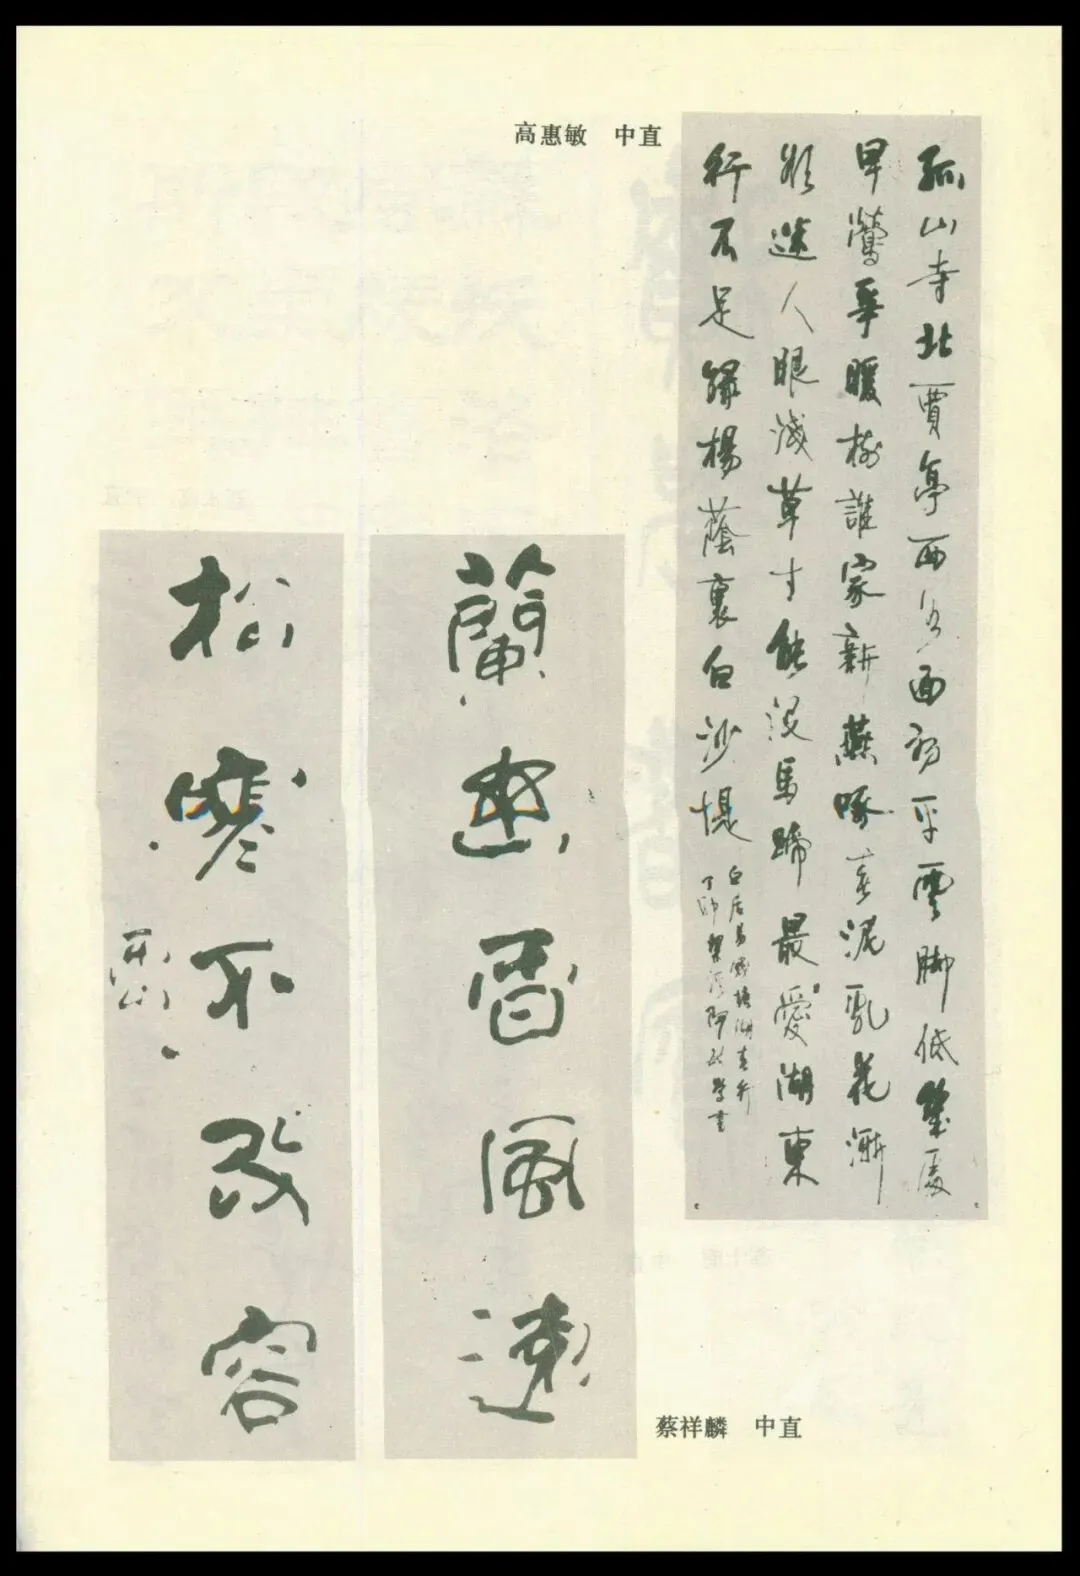 高惠敏　中直
孤山寺北賈亭西水面初平雲脚低幾處
早鶯爭暖樹誰家新燕啄春泥亂花漸
欲迷人眼淺草才能沒馬蹄最愛湖東
行不足綠楊蔭裏白沙堤
白居易錢塘湖春行
丁卯 學書
蘭幽香風遠
松寒不改容
蔡祥麟　中直